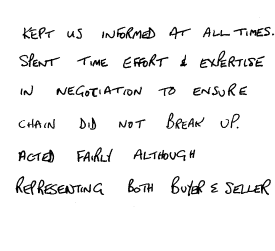 KEPT US INFORMED AT ALL TIMES.
SPENT TIME EFFORT & EXPERTISE
IN NEGOTIATION TO ENSURE
CHAIN DID NOT BREAK UP.
ACTED FAIRLY ALTHOUGH
REPRESENTING BOTH BUYER & SELLER